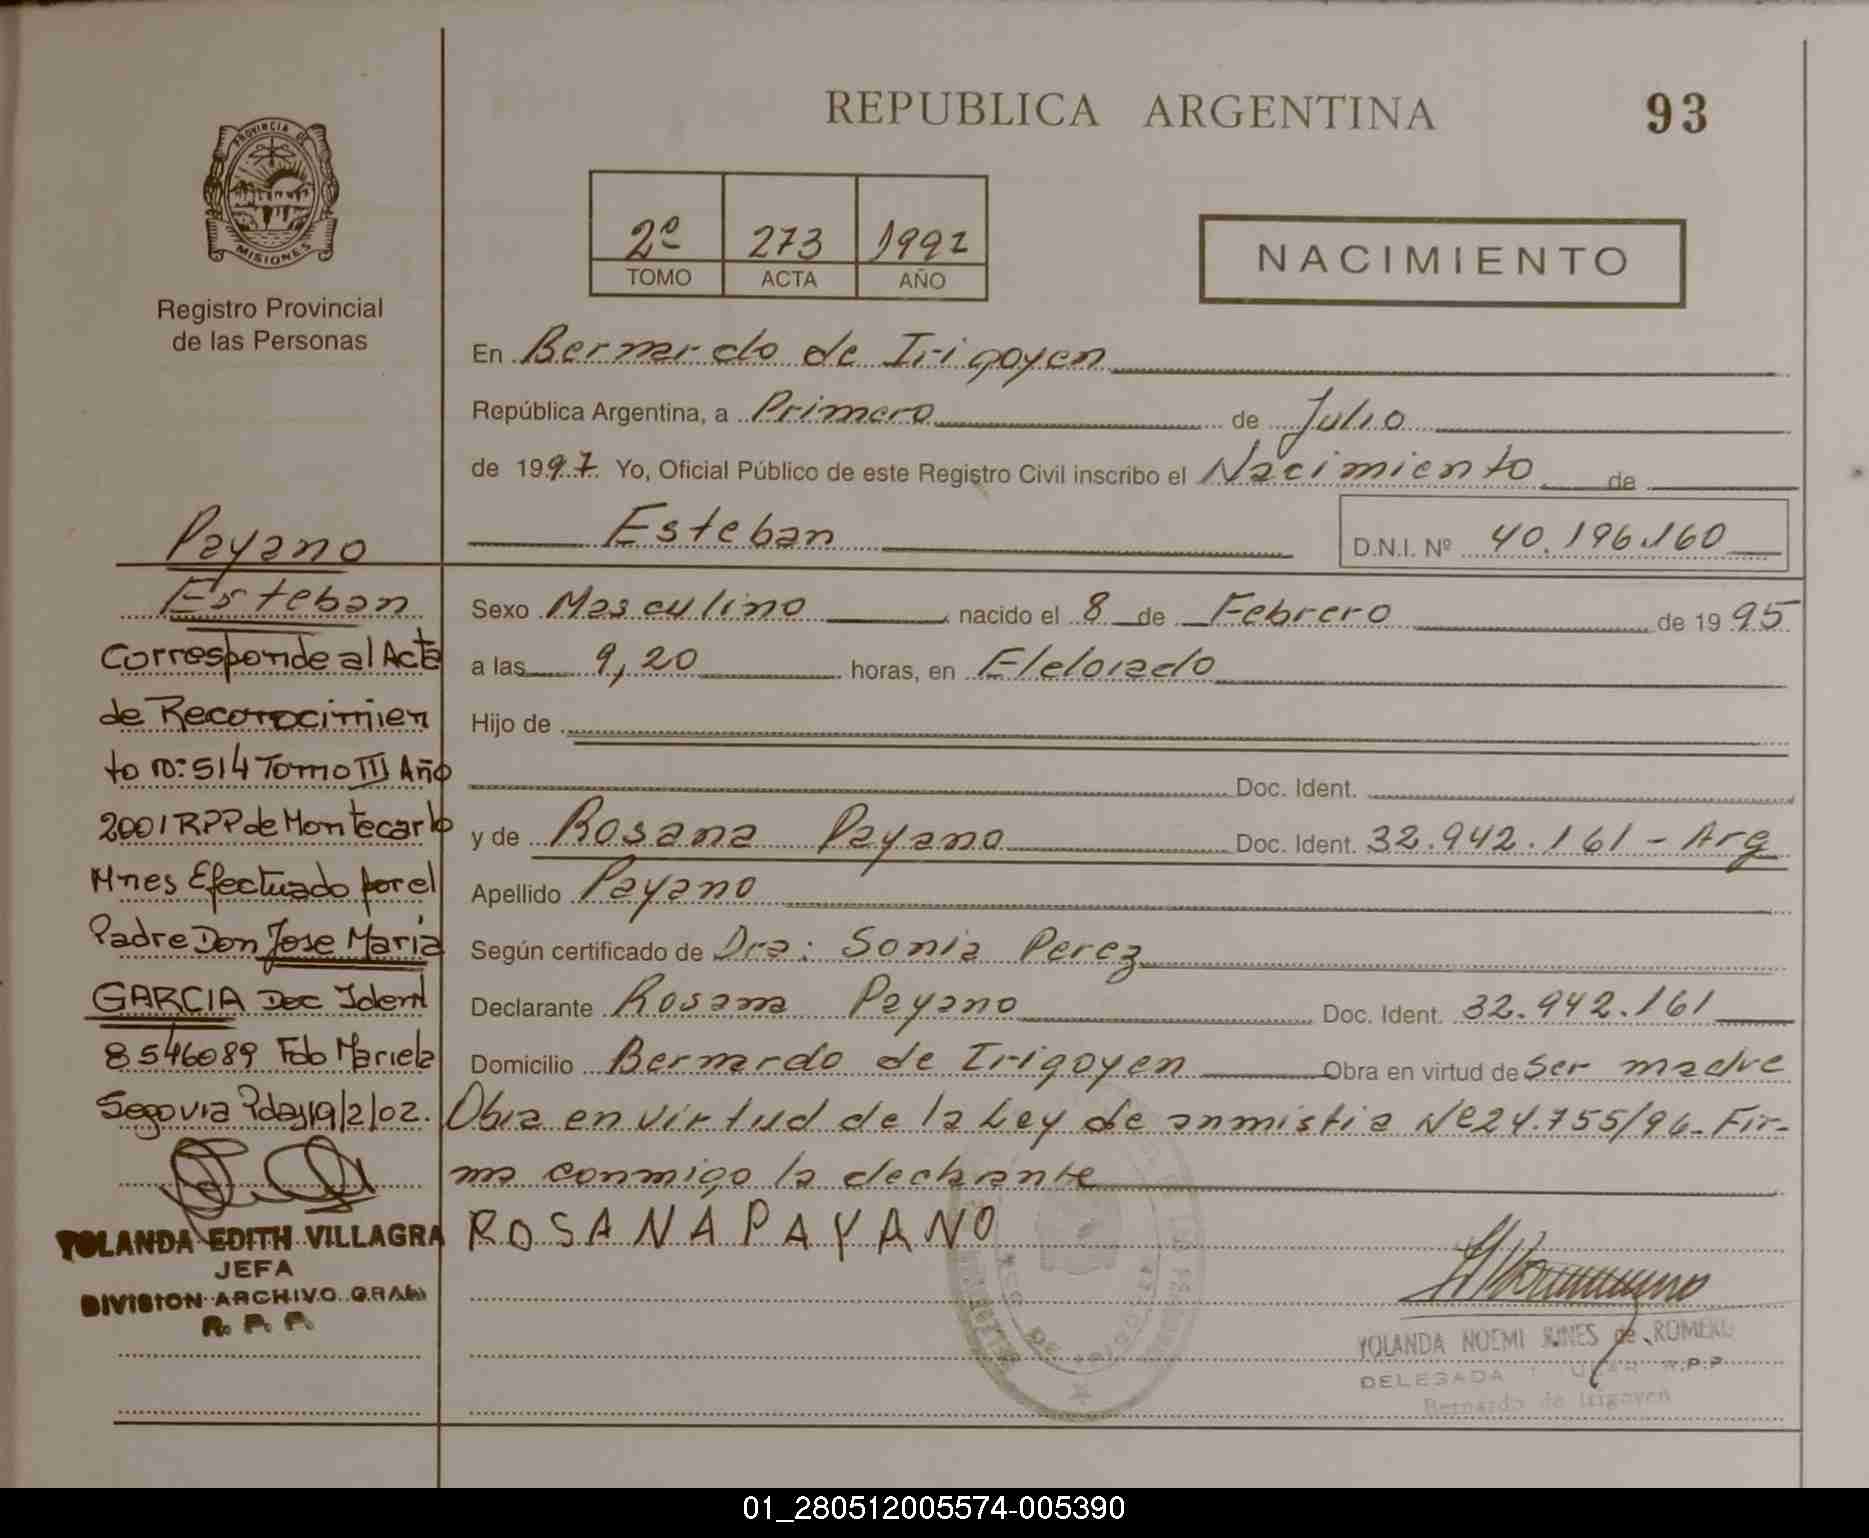 REPUBLICA ARGENTINA
93
PROVINCIA DE
MISIONES
Registro Provincial
de las Personas
2º 273 1997
TOMO ACTA AÑO
NACIMIENTO
En Bernardo de Irigoyen
República Argentina, a Primero de Julio
de 1997 Yo, Oficial Público de este Registro Civil inscribo el Nacimiento de
Esteban D.N.I. Nº 40.196.160
Sexo Masculino nacido el 8 de Febrero de 1995
a las 9,20 horas, en Eldorado
Hijo de
Doc. Ident.
y de Rosana Payano Doc. Ident. 32.942.161 - Arg
Apellido Payano
Según certificado de Dra: Sonia Perez
Declarante Rosana Payano Doc. Ident. 32.942.161
Domicilio Bernardo de Irigoyen Obra en virtud de Ser madre
Obra en virtud de la Ley de anmistia Nº 24.755/96. Fir-
ma conmigo la declarante
ROSANA PAYANO
Payano
Esteban
Corresponde al Acta
de Reconocimien
to Nº: 514 Tomo III Año
2001 RPP de Montecarlo
Mnes Efectuado por el
Padre Don Jose Maria
GARCIA Doc Ident
8546089 Fdo Mariela
Segovia Pdas 19/2/02.
YOLANDA EDITH VILLAGRA
JEFA
DIVISION ARCHIVO GRAL
R. P. P.
YOLANDA NOEMI de ROMERO
DELEGADA R.P.P
Bernardo de Irigoyen
01_280512005574-005390